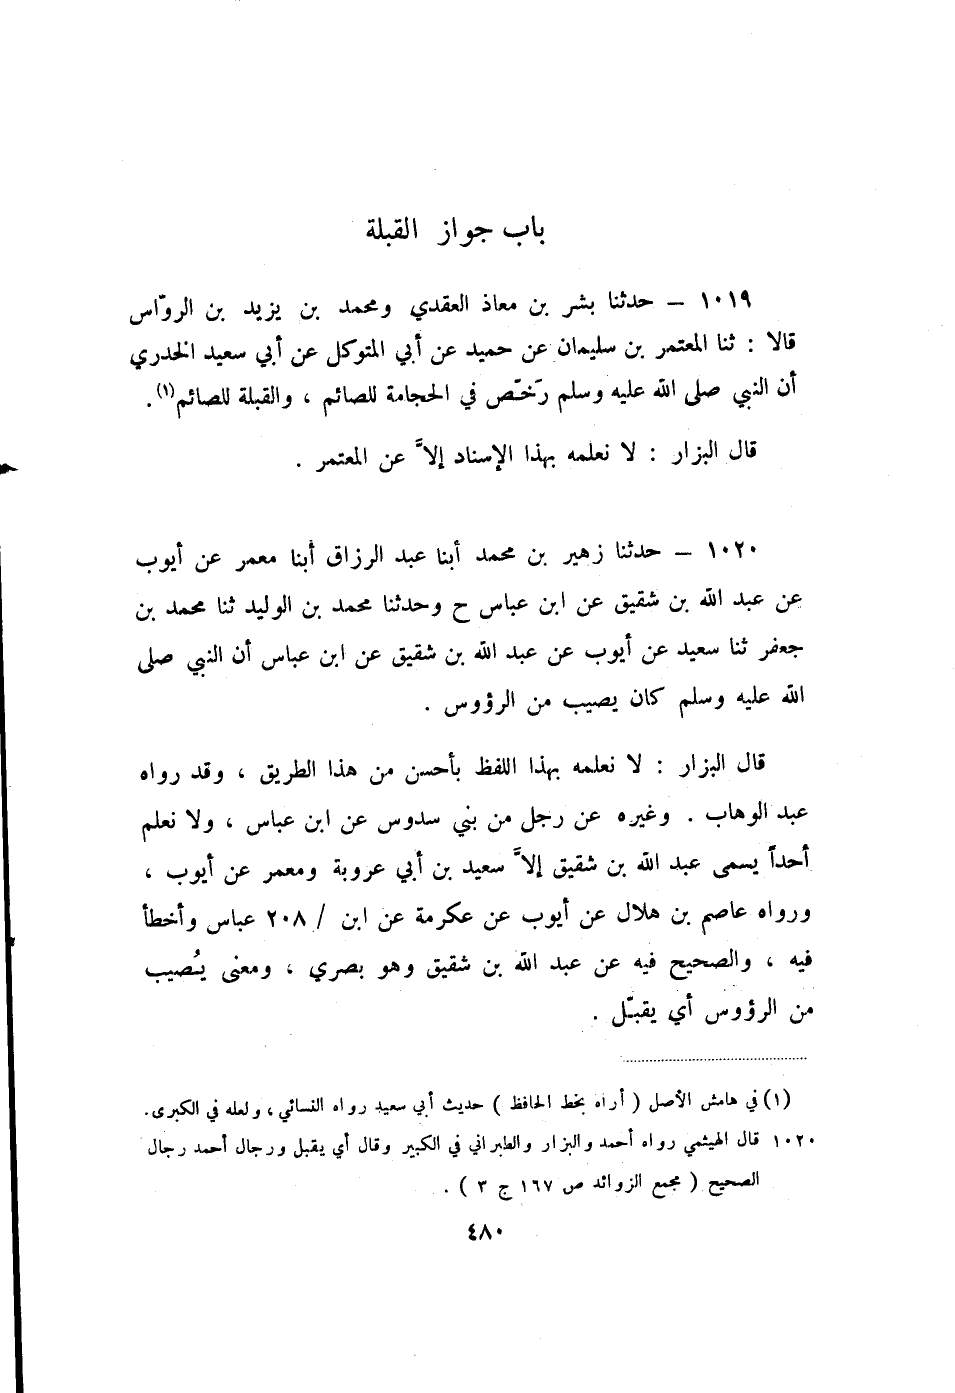 باب جواز القبلة
١٠١٩ – حدثنا بشر بن معاذ العقدي ومحمد بن يزيد بن الروّاس
قالا : ثنا المعتمر بن سليمان عن حميد عن أبي المتوكل عن أبي سعيد الخدري
أن النبي صلى الله عليه وسلم رَخّص في الحجامة للصائم ، والقبلة للصائم(١) .
قال البزار : لا نعلمه بهذا الإسناد إلاَّ عن المعتمر .
١٠٢٠ – حدثنا زهير بن محمد أبنا عبد الرزاق أبنا معمر عن أيوب
عن عبد الله بن شقيق عن ابن عباس ح وحدثنا محمد بن الوليد ثنا محمد بن
جعفر ثنا سعيد عن أيوب عن عبد الله بن شقيق عن ابن عباس أن النبي صلى
الله عليه وسلم كان يصيب من الرؤوس .
قال البزار : لا نعلمه بهذا اللفظ بأحسن من هذا الطريق ، وقد رواه
عبد الوهاب . وغيره عن رجل من بني سدوس عن ابن عباس ، ولا نعلم
أحداً يسمى عبد الله بن شقيق إلاَّ سعيد بن أبي عروبة ومعمر عن أيوب ،
ورواه عاصم بن هلال عن أيوب عن عكرمة عن ابن / ٢٠٨ عباس وأخطأ
فيه ، والصحيح فيه عن عبد الله بن شقيق وهو بصري ، ومعنى يُصيب
من الرؤوس أي يقبّل .
(١) في هامش الأصل ( أراه بخط الحافظ ) حديث أبي سعيد رواه النسائي ، ولعله في الكبرى .
١٠٢٠ قال الهيثمي رواه أحمد والبزار والطبراني في الكبير وقال أي يقبل ورجال أحمد رجال
الصحيح ( مجمع الزوائد ص ١٦٧ ج ٣ ) .
٤٨٠